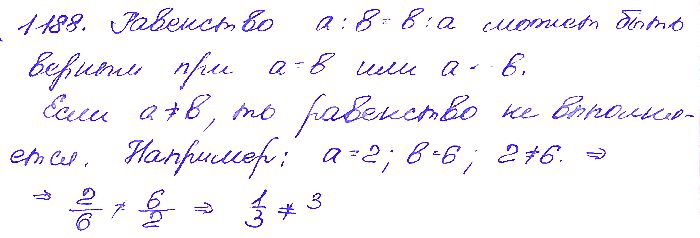 1188. Равенство a : b = b : a может быть
верным при a = b или a = - b.
Если a ≠ b, то равенство не выполня-
ется. Например: a = 2; b = 6; 2 ≠ 6. ⇒
⇒ 2/6 ≠ 6/2 ⇒ 1/3 ≠ 3